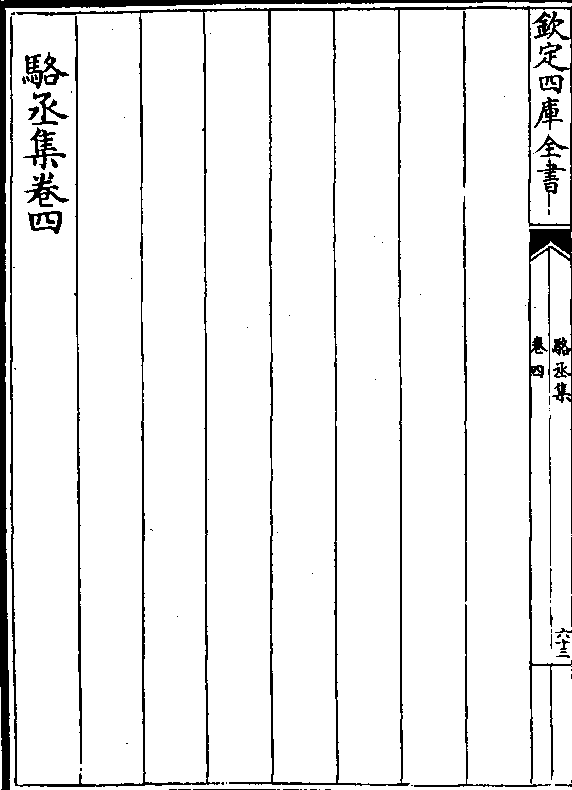 欽定四庫全書
駱丞集
卷四
六十三
駱丞集卷四